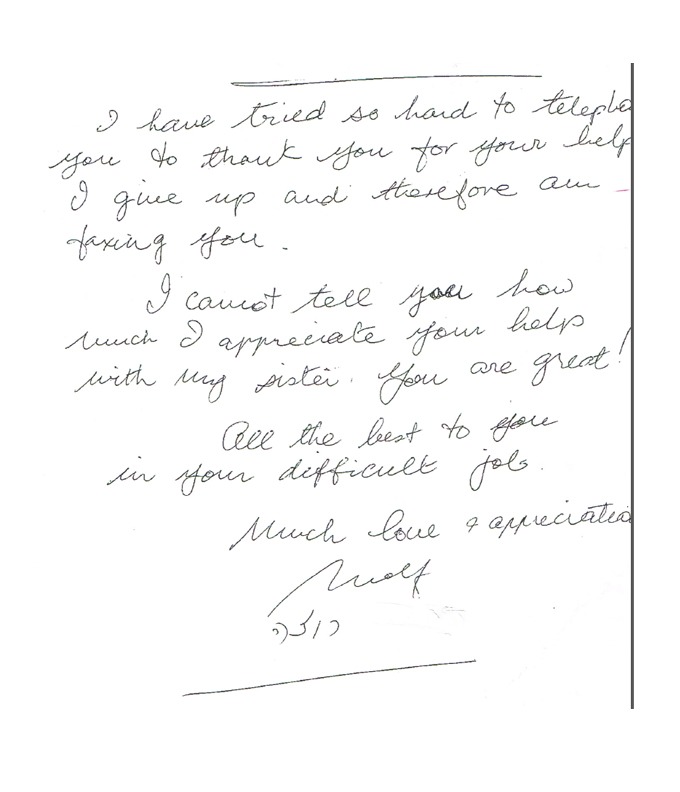 I have tried so hard to telepho
you to thank you for your help
I give up and therefore am
faxing you.
I cannot tell you how
much I appreciate your help
with my sister. You are great!
All the best to you
in your difficult job.
Much love & appreciatio